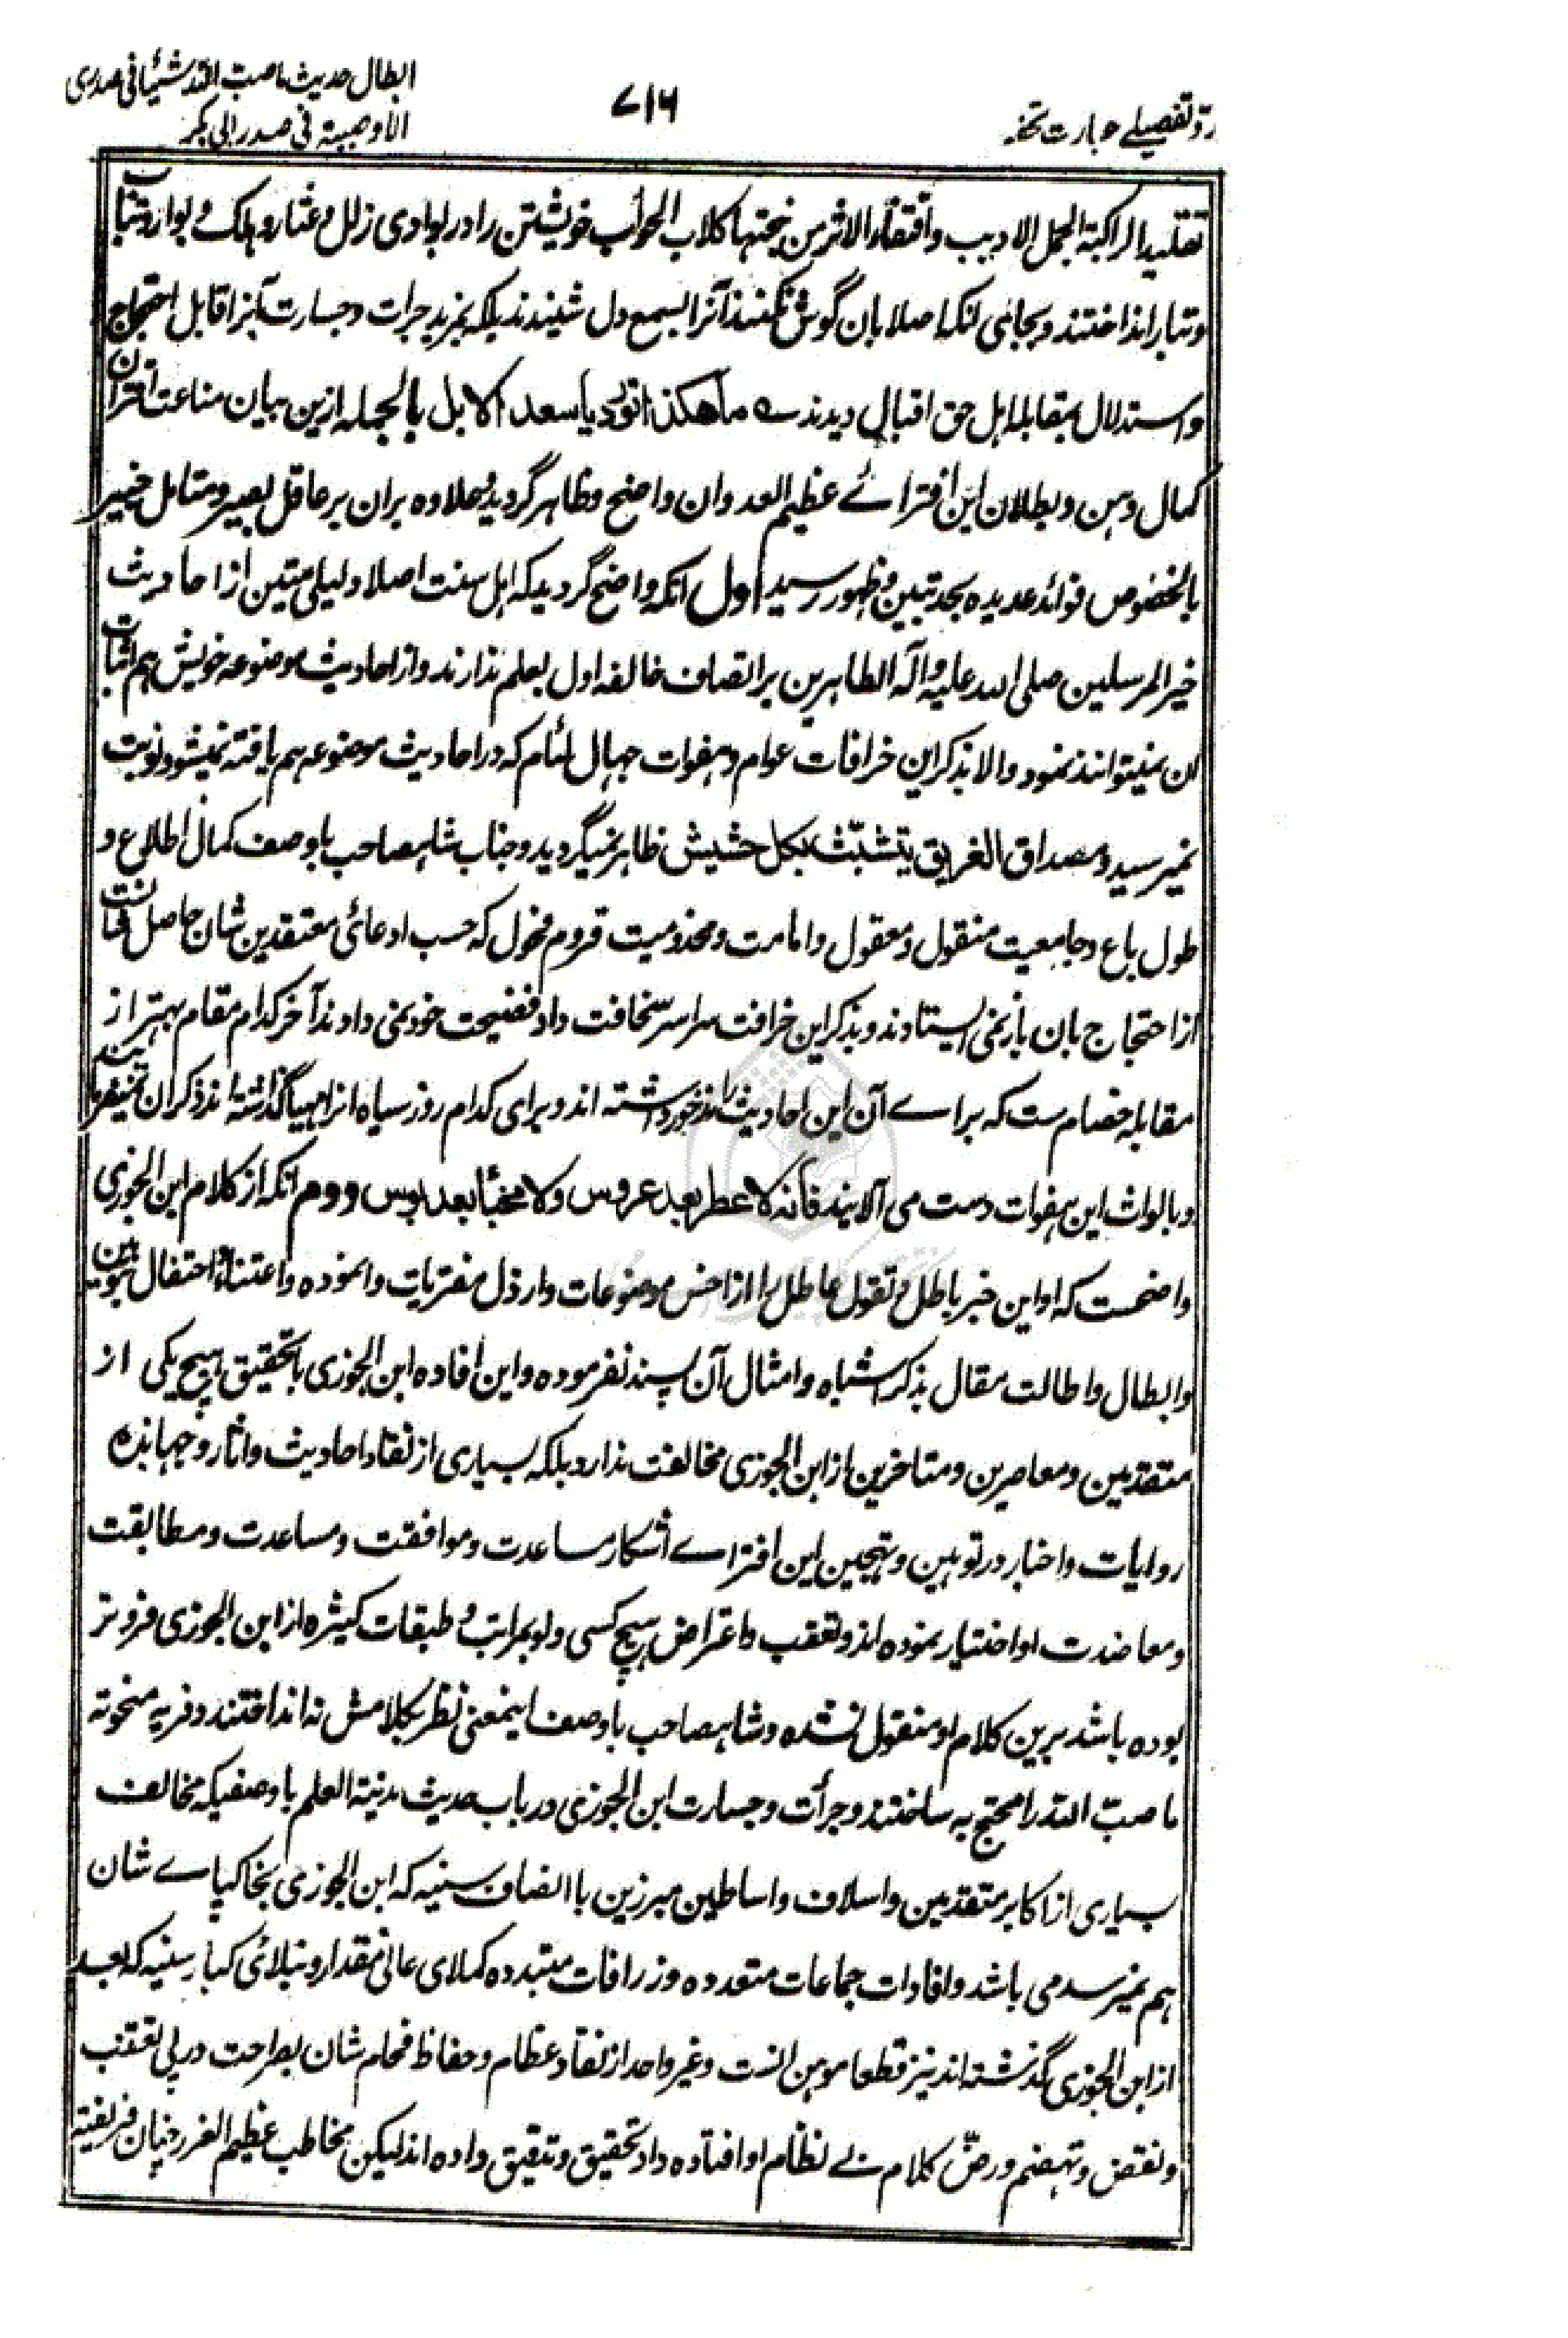 ردّ تفصیلے عبارت تحفہ
۷۱۶
ابطال حدیث ماصبّ اللّه شیئا فی صدری
الا وصببته فی صدر ابی بکر
تقلیدا لراکبة الجمل الادبب واقتفاء لاثر من نبحتها کلاب الحوأب خویشتن را در بوادی زلل و عثار و هلک و بوار و تباب
و تبار انداختند و بجائی انکه اصلا بان گوش نکنند آنرا بسمع دل شنیدند بلکه بمزید جرات و جسارت آنرا قابل احتجاج
و استدلال بمقابله اهل حق اقبال دیدند ے ماهکذا تورد یا سعد الابل بالجمله ازین بیان متاعت اقتران
کمال وهن و بطلان این افترائے عظیم العدوان واضح و ظاهر گردید و علاوه بران بر عاقل بصیر و متامل خبیر
بالخصوص فوائد عدیده بحد تبیین و ظهور رسید اول انکه واضح گردید که اهل سنت اصلا دلیلی متین از احادیث
خیر المرسلین صلی الله علیه و آله الطاهرین بر اتصاف خالفه اول بعلم ندارند و از احادیث موضوعه خویش هم اثبات
ان نمیتوانند نمود والا بذکر این خرافات عوام و هفوات جهال لئام که در احادیث موضوعه هم یافته نمیشود نوبت
نمیرسید و مصداق الغریق یتشبّث بکل حشیش ظاهر نمیگردید و جناب شاهصاحب باوصف کمال اطلاع و
طول باع و جامعیت منقول و معقول و امامت و مخدومیت قروم فحول که حسب ادعائی معتقدین شان حاصل شانست
از احتجاج بان باز نمی ایستادند و بذکر این خرافت سراسر سخافت داد فضیحت خود نمی دادند آخر کدام مقام بهتر از
مقابله خصام ست که براے آن این احادیث را ذخیره داشته اند و برای کدام روز سیاه انرا مهیا گذاشته اند ذکر ان نمیفرمایند
و بالواث این هفوات دست می آلایند فانه لا عطر بعد عروس ولا مخبأ بعد بوس دوم انکه از کلام ابن الجوزی
واضحست که او این خبر باطل و تقول عاطل را از اخس موضوعات و ارذل مفتریات وانموده و اعتناء و احتفال بتوهین
و ابطال و اطالت مقال بذکر اشباه و امثال آن پسند نفرموده و این افاده ابن الجوزی با تحقیق هیچ یکی از
متقدمین و معاصرین و متاخرین از ابن الجوزی مخالفت ندارد بلکه بسیاری از نقاد احادیث و اثار و جهابذه
روایات و اخبار در توهین و تهجین این افتراے آشکار مساعدت و موافقت و مساعدت و مطابقت
و معاضدت او اختیار نموده اند و تعقب و اعتراض هیچ کسی ولو بمراتب و طبقات کثیره از ابن الجوزی فروتر
بوده باشد برین کلام او منقول نشده و شاهصاحب باوصف اینمعنی نظر بکلامش نه انداختند و فریه منحوته
ما صبّ اللّه را محتج به ساختند و جرأت و جسارت ابن الجوزی در باب حدیث مدینة العلم باوصفیکه مخالف
بسیاری از اکابر متقدمین و اسلاف و اساطین مبرزین با انصاف سنیه که ابن الجوزی بخاکپاے شان
هم نمیرسد می باشد و افادات جماعات متعدده و زرافات متبدده کملای عالیمقدار و نبلائی کبار سنیه که بعد
از ابن الجوزی گذشته اند نیز قطعا موهن انست و غیر واحد از نقاد عظام و حفاظ فخام شان بصراحت در پی تعقب
و نقض و تهضیم و رضّ کلام بے نظام او افتاده داد تحقیق و تدقیق داده اند لیکن مخاطب عظیم الغرر چنان فریفته